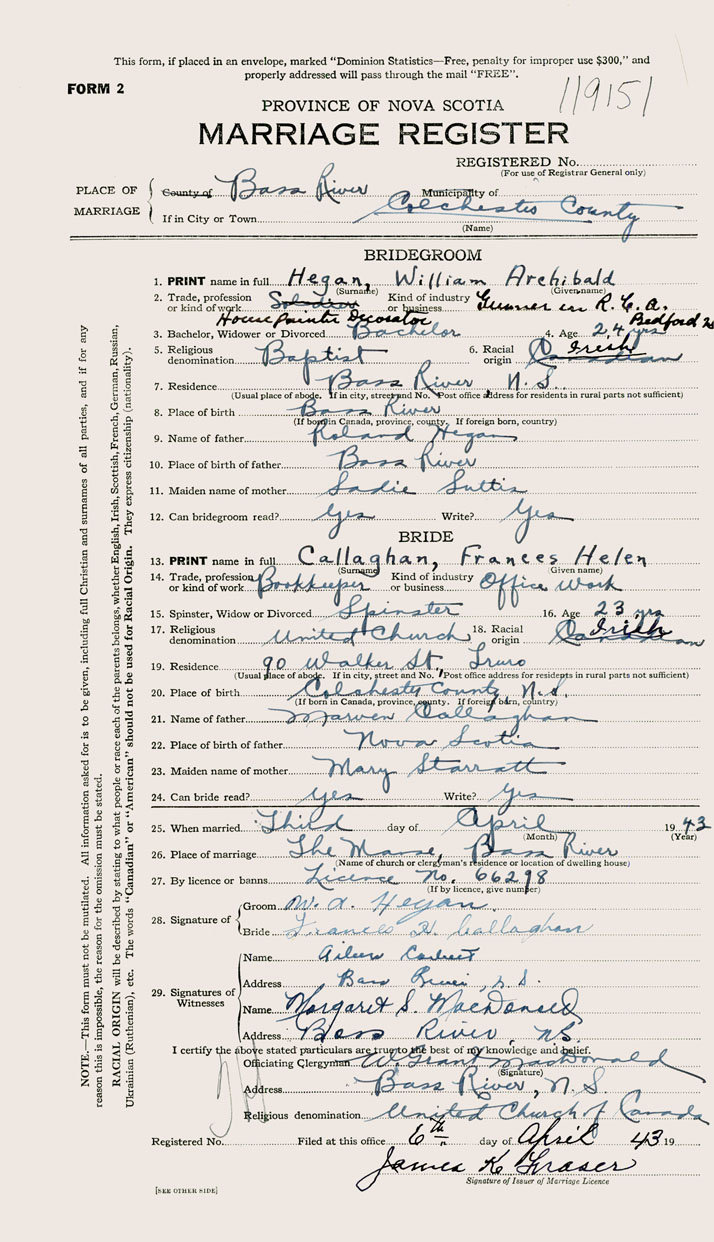 This form, if placed in an envelope, marked "Dominion Statistics—Free, penalty for improper use $300," and
properly addressed will pass through the mail "FREE".
FORM 2
119151
PROVINCE OF NOVA SCOTIA
MARRIAGE REGISTER
REGISTERED No.
(For use of Registrar General only)
PLACE OF MARRIAGE
County of Bass River Municipality of
If in City or Town Colchester County
(Name)
BRIDEGROOM
1. PRINT name in full Hegan, William Archibald
(Surname) (Given name)
2. Trade, profession or kind of work Soldier Kind of industry or business Gunner in R.C.A.
House Painter Decorator Bedford
3. Bachelor, Widower or Divorced Bachelor 4. Age 24 yrs
5. Religious denomination Baptist 6. Racial origin Canadian Irish
7. Residence Bass River N.S.
(Usual place of abode. If in city, street and No. Post office address for residents in rural parts not sufficient)
8. Place of birth Bass River
(If born in Canada, province, county. If foreign born, country)
9. Name of father Roland Hegan
10. Place of birth of father Bass River
11. Maiden name of mother Sadie Suttis
12. Can bridegroom read? Yes Write? Yes
BRIDE
13. PRINT name in full Callaghan, Frances Helen
(Surname) (Given name)
14. Trade, profession or kind of work Bookkeeper Kind of industry or business Office Work
15. Spinster, Widow or Divorced Spinster 16. Age 23 yrs
17. Religious denomination United Church 18. Racial origin Canadian Irish
19. Residence 90 Walker St., Truro
(Usual place of abode. If in city, street and No. Post office address for residents in rural parts not sufficient)
20. Place of birth Colchester County, N.S.
(If born in Canada, province, county. If foreign born, country)
21. Name of father Marven Callaghan
22. Place of birth of father Nova Scotia
23. Maiden name of mother Mary Starratt
24. Can bride read? Yes Write? Yes
25. When married Third day of April 1943
(Month) (Year)
26. Place of marriage The Manse, Bass River
(Name of church or clergyman's residence or location of dwelling house)
27. By licence or banns Licence No. 66298
(If by licence, give number)
28. Signature of
Groom W. A. Hegan
Bride Frances H. Callaghan
29. Signatures of Witnesses
Name Aileen Corbett
Address Bass River, N.S.
Name Margaret S. MacDonald
Address Bass River, NS.
I certify the above stated particulars are true to the best of my knowledge and belief.
Officiating Clergyman W. Grant MacDonald
(Signature)
Address Bass River, N.S
Religious denomination United Church of Canada
Registered No. Filed at this office 6th day of April 43 19
James K Fraser
Signature of Issuer of Marriage Licence
[SEE OTHER SIDE]
NOTE.—This form must not be mutilated. All information asked for is to be given, including full Christian and surnames of all parties, and if for any
reason this is impossible, the reason for the omission must be stated.
RACIAL ORIGIN will be described by stating to what people or race each of the parents belongs, whether English, Irish, Scottish, French, German, Russian,
Ukrainian (Ruthenian), etc. The words "Canadian" or "American" should not be used for Racial Origin. They express citizenship (nationality).